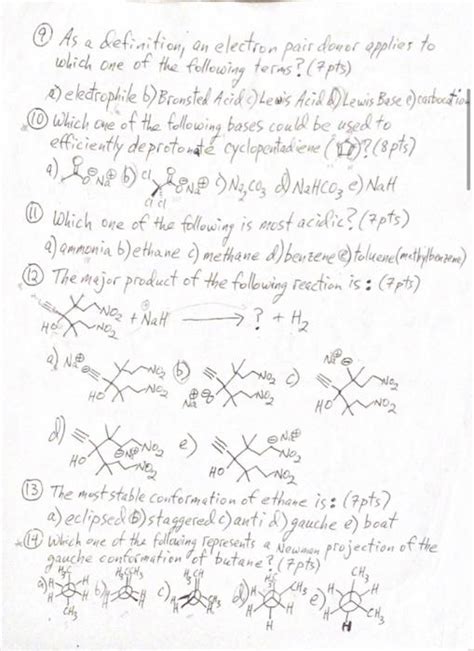 ⑨ As a definition, an electron pair donor applies to
which one of the following terms? (7pts)
a) electrophile b) Bronsted Acid c) Lewis Acid d) Lewis Base e) carbocation
⑩ Which one of the following bases could be used to
efficiently deprotonate cyclopentadiene ( )? (8pts)
a) O Na⊕ b) Cl Cl Cl O Na⊕ c) Na2CO3 d) NaHCO3 e) NaH
⑪ Which one of the following is most acidic? (7pts)
a) ammonia b) ethane c) methane d) benzene e) toluene (methylbenzene)
⑫ The major product of the following reaction is: (7pts)
HO NO2 NO2 + NaH → ? + H2
a) Na⊕ HO NO2 NO2 b) Na⊕ NO2 NO2 c) Na⊕ HO NO2 NO2
d) HO Na⊕ NO2 NO2 e) HO Na⊕ NO2 NO2
⑬ The most stable conformation of ethane is: (7pts)
a) eclipsed b) staggered c) anti d) gauche e) boat
⑭ Which one of the following represents a Newman projection of the
gauche conformation of butane? (7pts)
a) b) c) d) e)